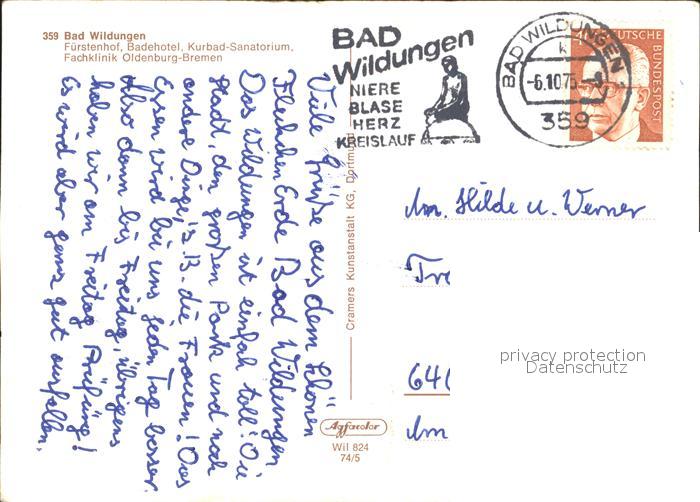 359 Bad Wildungen
Fürstenhof, Badehotel, Kurbad-Sanatorium,
Fachklinik Oldenburg-Bremen
BAD
Wildungen
NIERE
BLASE
HERZ
KREISLAUF
BAD WILDUNGEN
k
-6.10.75
359
40 DEUTSCHE
BUNDESPOST
Viele Grüße aus dem schönen
Fleckchen Erde Bad Wildungen
Das Wildungen ist einfach toll! Die
Stadt, den großen Park und noch
andere Dinge, z.B. die Frauen! Das
Essen wird bei uns jeden Tag besser.
Also dann bis Freitag, übrigens
haben wir am Freitag Prüfung!
Es wird aber ganz gut ausfallen.
Cramers Kunstanstalt KG, Dortmund
Agfacolor
Wil 824
74/5
Am. Hilde u. Werner
Tre
64
Am
privacy protection
Datenschutz